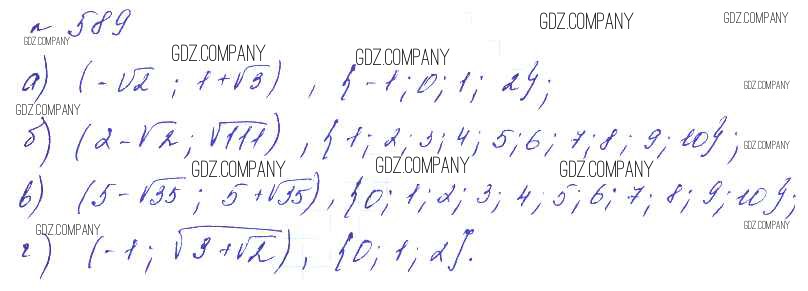 № 589
GDZ.COMPANY GDZ.COMPANY GDZ.COMPANY
GDZ.COMPANY GDZ.COMPANY
а) (-√2 ; 1+√3) , {-1; 0; 1; 2};
GDZ.COMPANY
GDZ.COMPANY
б) (2-√2; √111) , {1; 2; 3; 4; 5; 6; 7; 8; 9; 10};
GDZ.COMPANY
GDZ.COMPANY GDZ.COMPANY GDZ.COMPANY
в) (5-√35 ; 5+√35), {0; 1; 2; 3; 4; 5; 6; 7; 8; 9; 10};
GDZ.COMPANY GDZ.COMPANY
г) (-1; √(3+√2)), {0; 1; 2}.